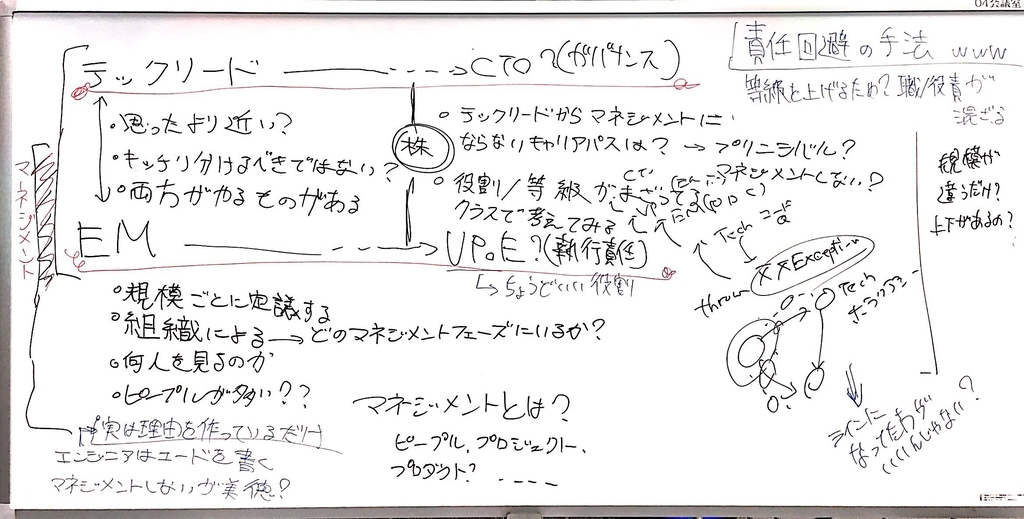 04会議室
テックリード → CTO?(ガバナンス)
責任回避の手法 www
等級を上げるため? 職/役責が
混ざる
・思ったより近い?
・キッチリ分けるべきではない?
・両方がやるものがある
株
・テックリードからマネジメントに
ならないキャリアパスは? → プリンシパル?
マネジメントしない?
・役割/等級がまざってる
クラスで考えてみる
EM → VPoE?(執行責任)
↳ちょうどいい役割
マネジメント
規模が
違うだけ?
上下があるの?
Tech
コード
throw
××Exception
Tech
・規模ごとに定議する
・組織による → どのマネジメントフェーズにいるか?
・何人を見るのか
・ピープルが多い??
実は理由を作っているだけ
エンジニアはコードを書く
マネジメントしないが美徳?
マネジメントとは?
ピープル、プロジェクト、
プロダクト?
なってたわが
いいんじゃない?